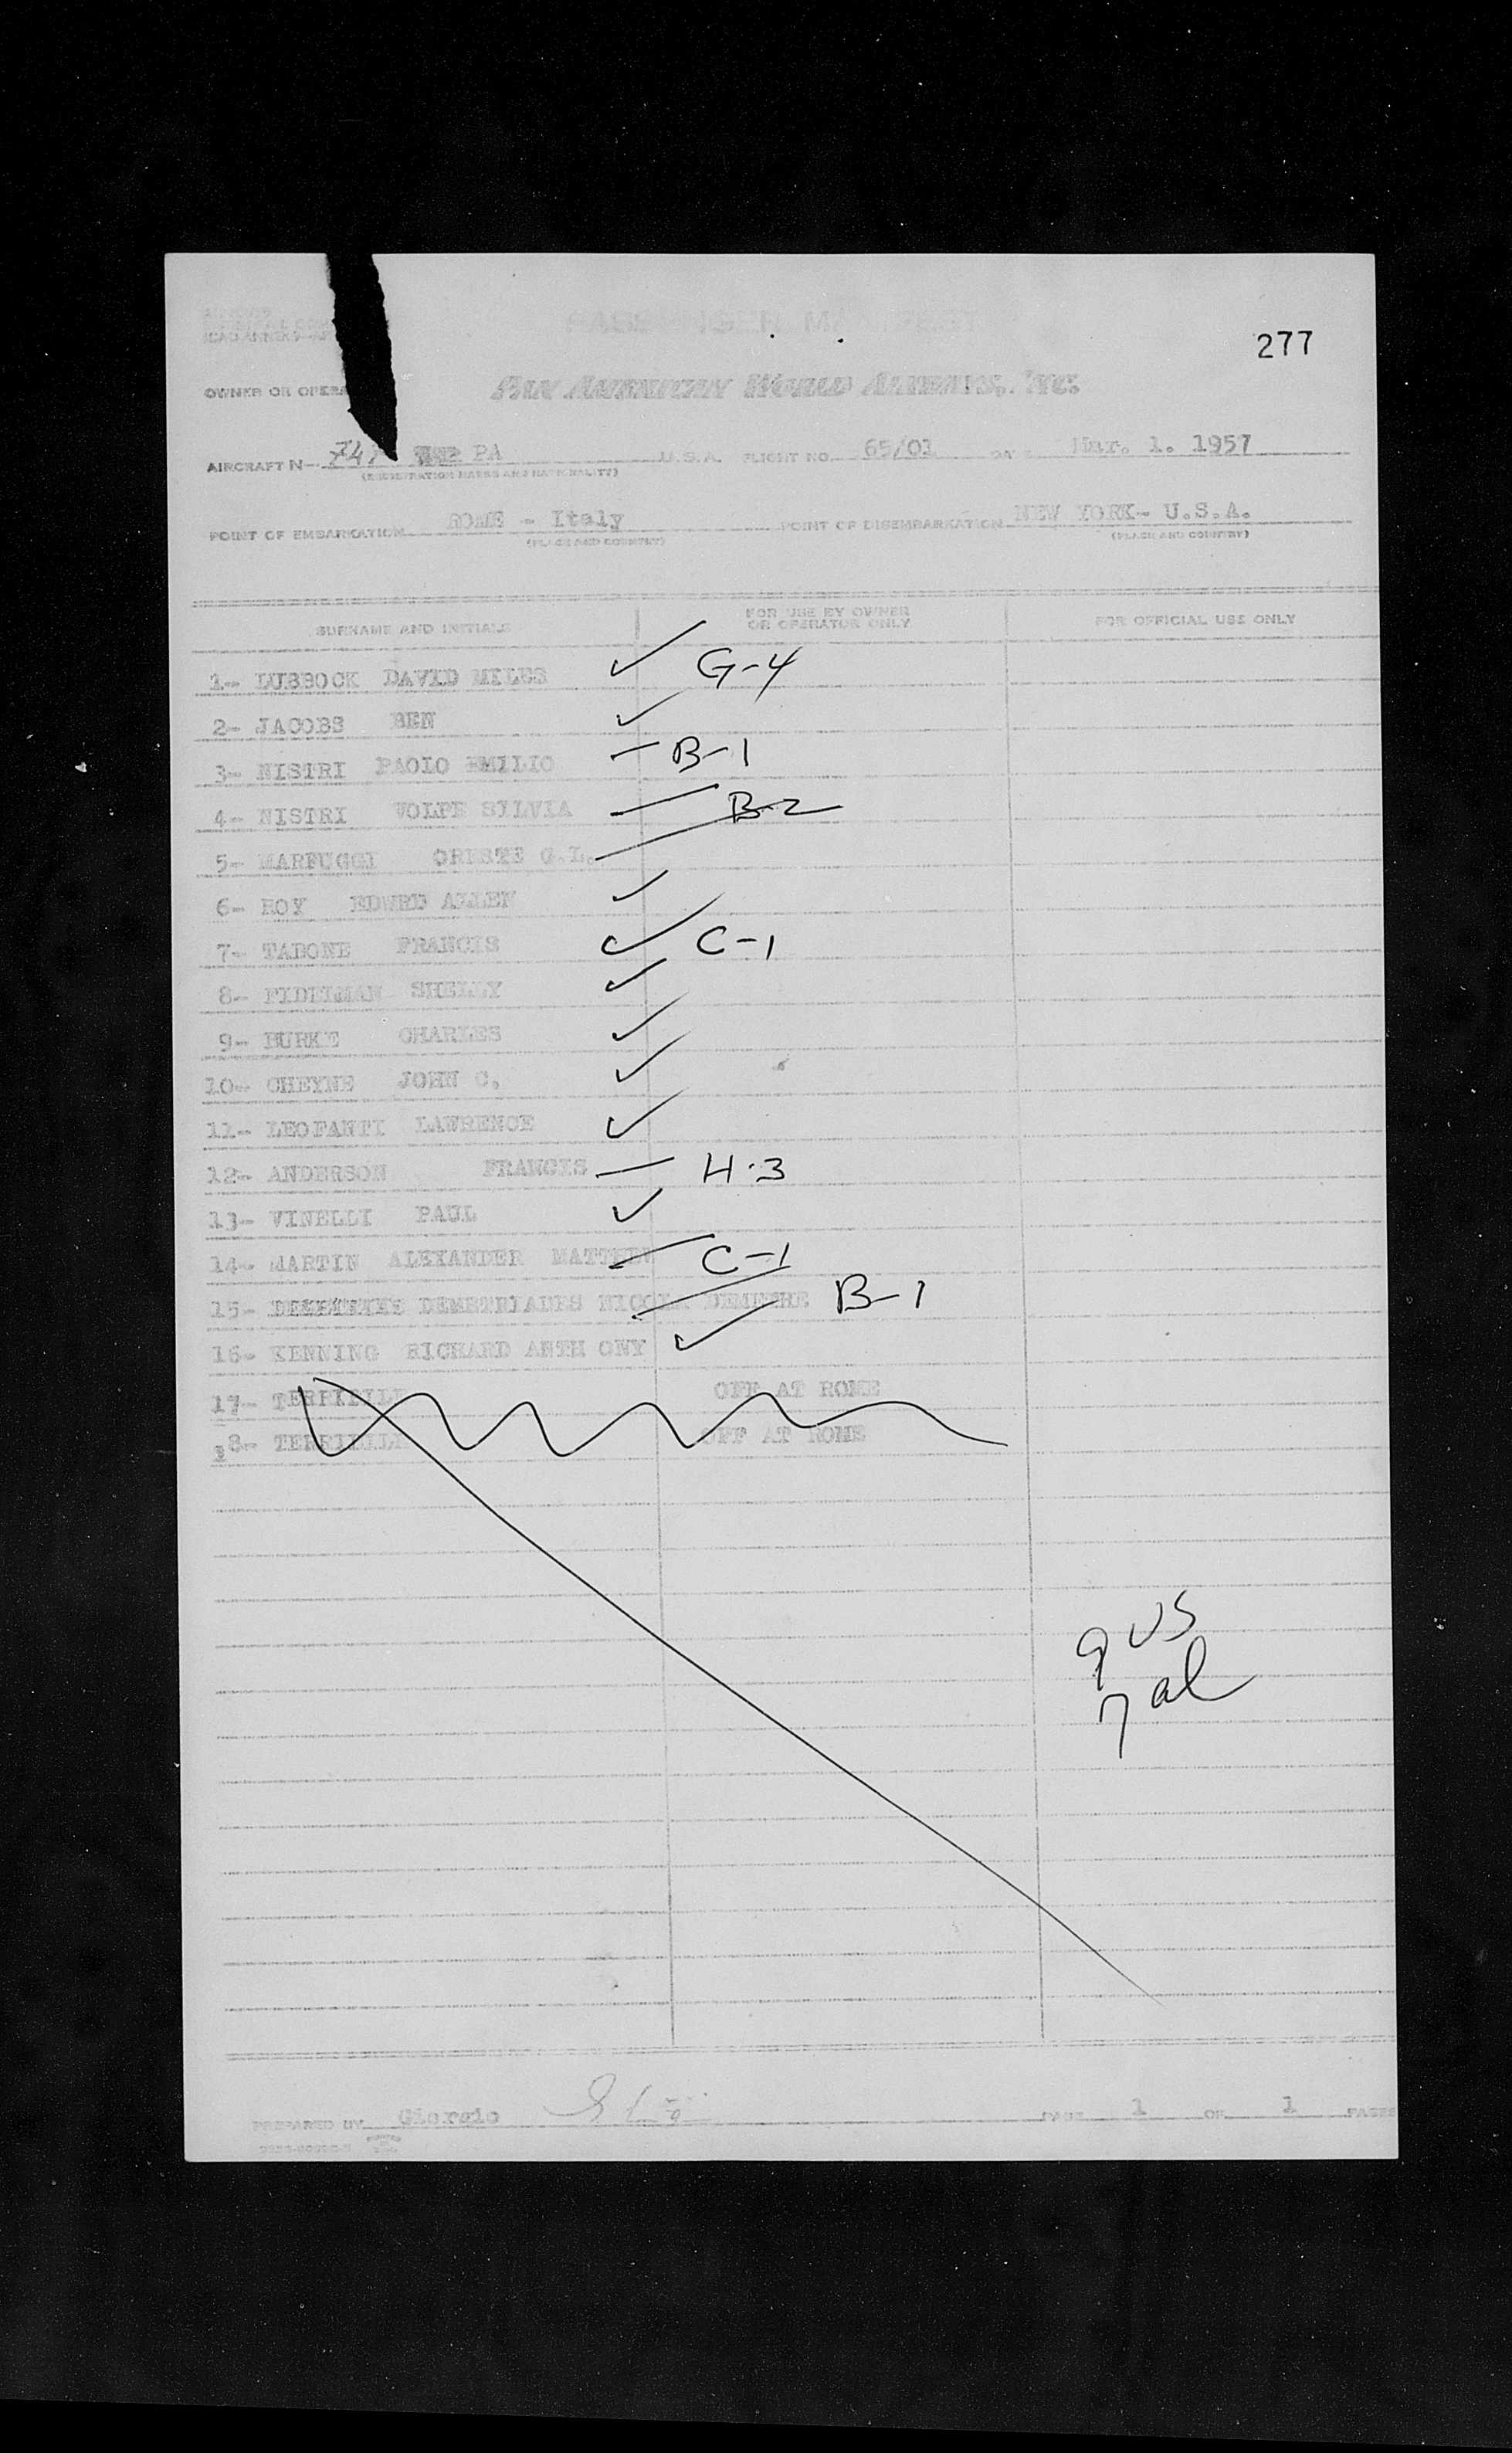 PASSENGER MANIFEST
277
ICAO ANNEX 9
OWNER OR OPERA
PAN AMERICAN WORLD AIRWAYS, INC.
AIRCRAFT N- 747 PA U.S.A. FLIGHT NO. 65/01 DATE Mar. 1. 1957
(REGISTRATION MARKS AND NATIONALITY)
POINT OF EMBARKATION ROME - Italy POINT OF DISEMBARKATION NEW YORK- U.S.A.
(PLACE AND COUNTRY) (PLACE AND COUNTRY)
SURNAME AND INITIALS FOR USE BY OWNER OR OPERATOR ONLY FOR OFFICIAL USE ONLY
1- LUBBOCK DAVID MILES ✓ G-4
2- JACOBS BEN ✓
3- NISTRI PAOLO EMILIO — B-1
4- NISTRI VOLPE SILVIA — B-2
5- MARFUGGI ORESTE G.L.
6- ROY EDWRD ALLEN ✓
7- TABONE FRANCIS ✓ C-1
8- FIDELMAN SHELLY ✓
9- BURKE CHARLES ✓
10- CHEYNE JOHN C. ✓
11- LEOFANTI LAWRENCE ✓
12- ANDERSON FRANCIS — H-3
13- VINELLI PAUL ✓
14- MARTIN ALEXANDER MATTHEW C-1
15- DEMETRIADES NICOLA DEMETRE B-1
16- KENNING RICHARD ANTH ONY ✓
17- TERRIBILE OFF AT ROME
18- TERRIBILE OFF AT ROME
9 US
7 al
PREPARED BY Giorgio PAGE 1 OF 1 PAGES